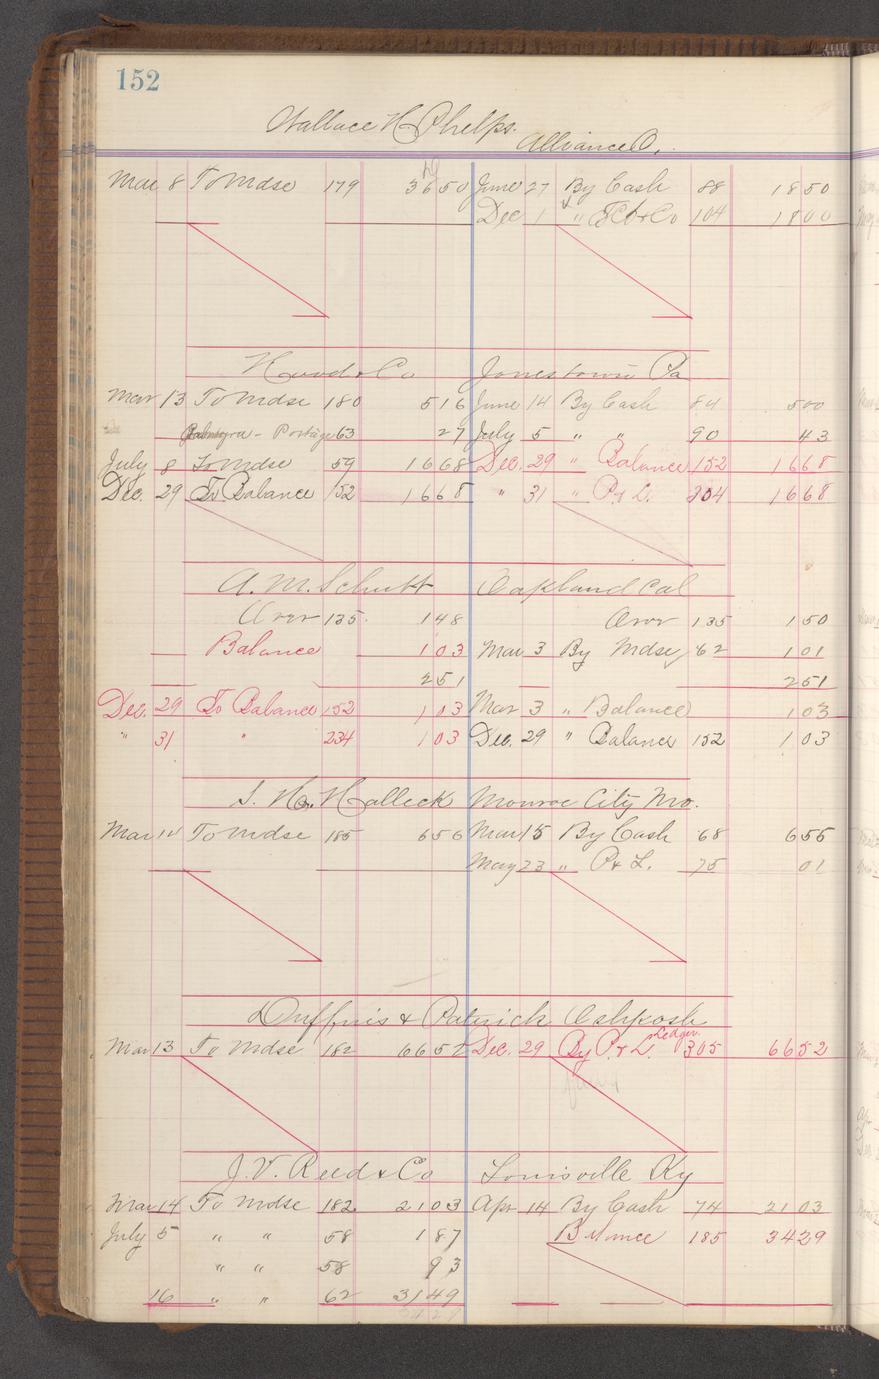 152
Wallace H Phelps.
Alliance O.
Mar 8 To Mdse 179 36 50 June 27 By Cash 88 18 50
Dec 1 " 104 18 00
Hurd & Co Jonestown Pa
Mar 13 To Mdse 180 5 16 June 14 By Cash 84 5 00
Postage 63 27 July 5 " " 90 43
July 8 To Mdse 59 16 68 Dec. 29 " Balance 152 16 68
Dec. 29 To Balance 152 16 68 " 31 " P & L. 304 16 68
A. M. Schutt Oakland Cal
Over 135 1 48 Over 135 1 50
Balance 1 03 Mar 3 By Mdse 62 1 01
2 51 2 51
Dec. 29 To Balance 152 1 03 Mar 3 " Balance 1 03
" 31 " 234 1 03 Dec. 29 " Balance 152 1 03
S. H. Halleck Monroe City Mo.
Mar 14 To Mdse 185 6 56 Mar 15 By Cash 68 6 55
May 23 " P & L. 75 01
Duffnis & Patrick Oshkosh
Mar 13 To Mdse 182 66 52 Dec. 29 By P. & L. Ledger 305 66 52
J. V. Reed & Co Louisville Ky
Mar 14 To Mdse 182 21 03 Apr 14 By Cash 74 21 03
July 5 " " 58 1 87 Balance 185 34 29
" " 58 93
16 " " 62 31 49
34 29